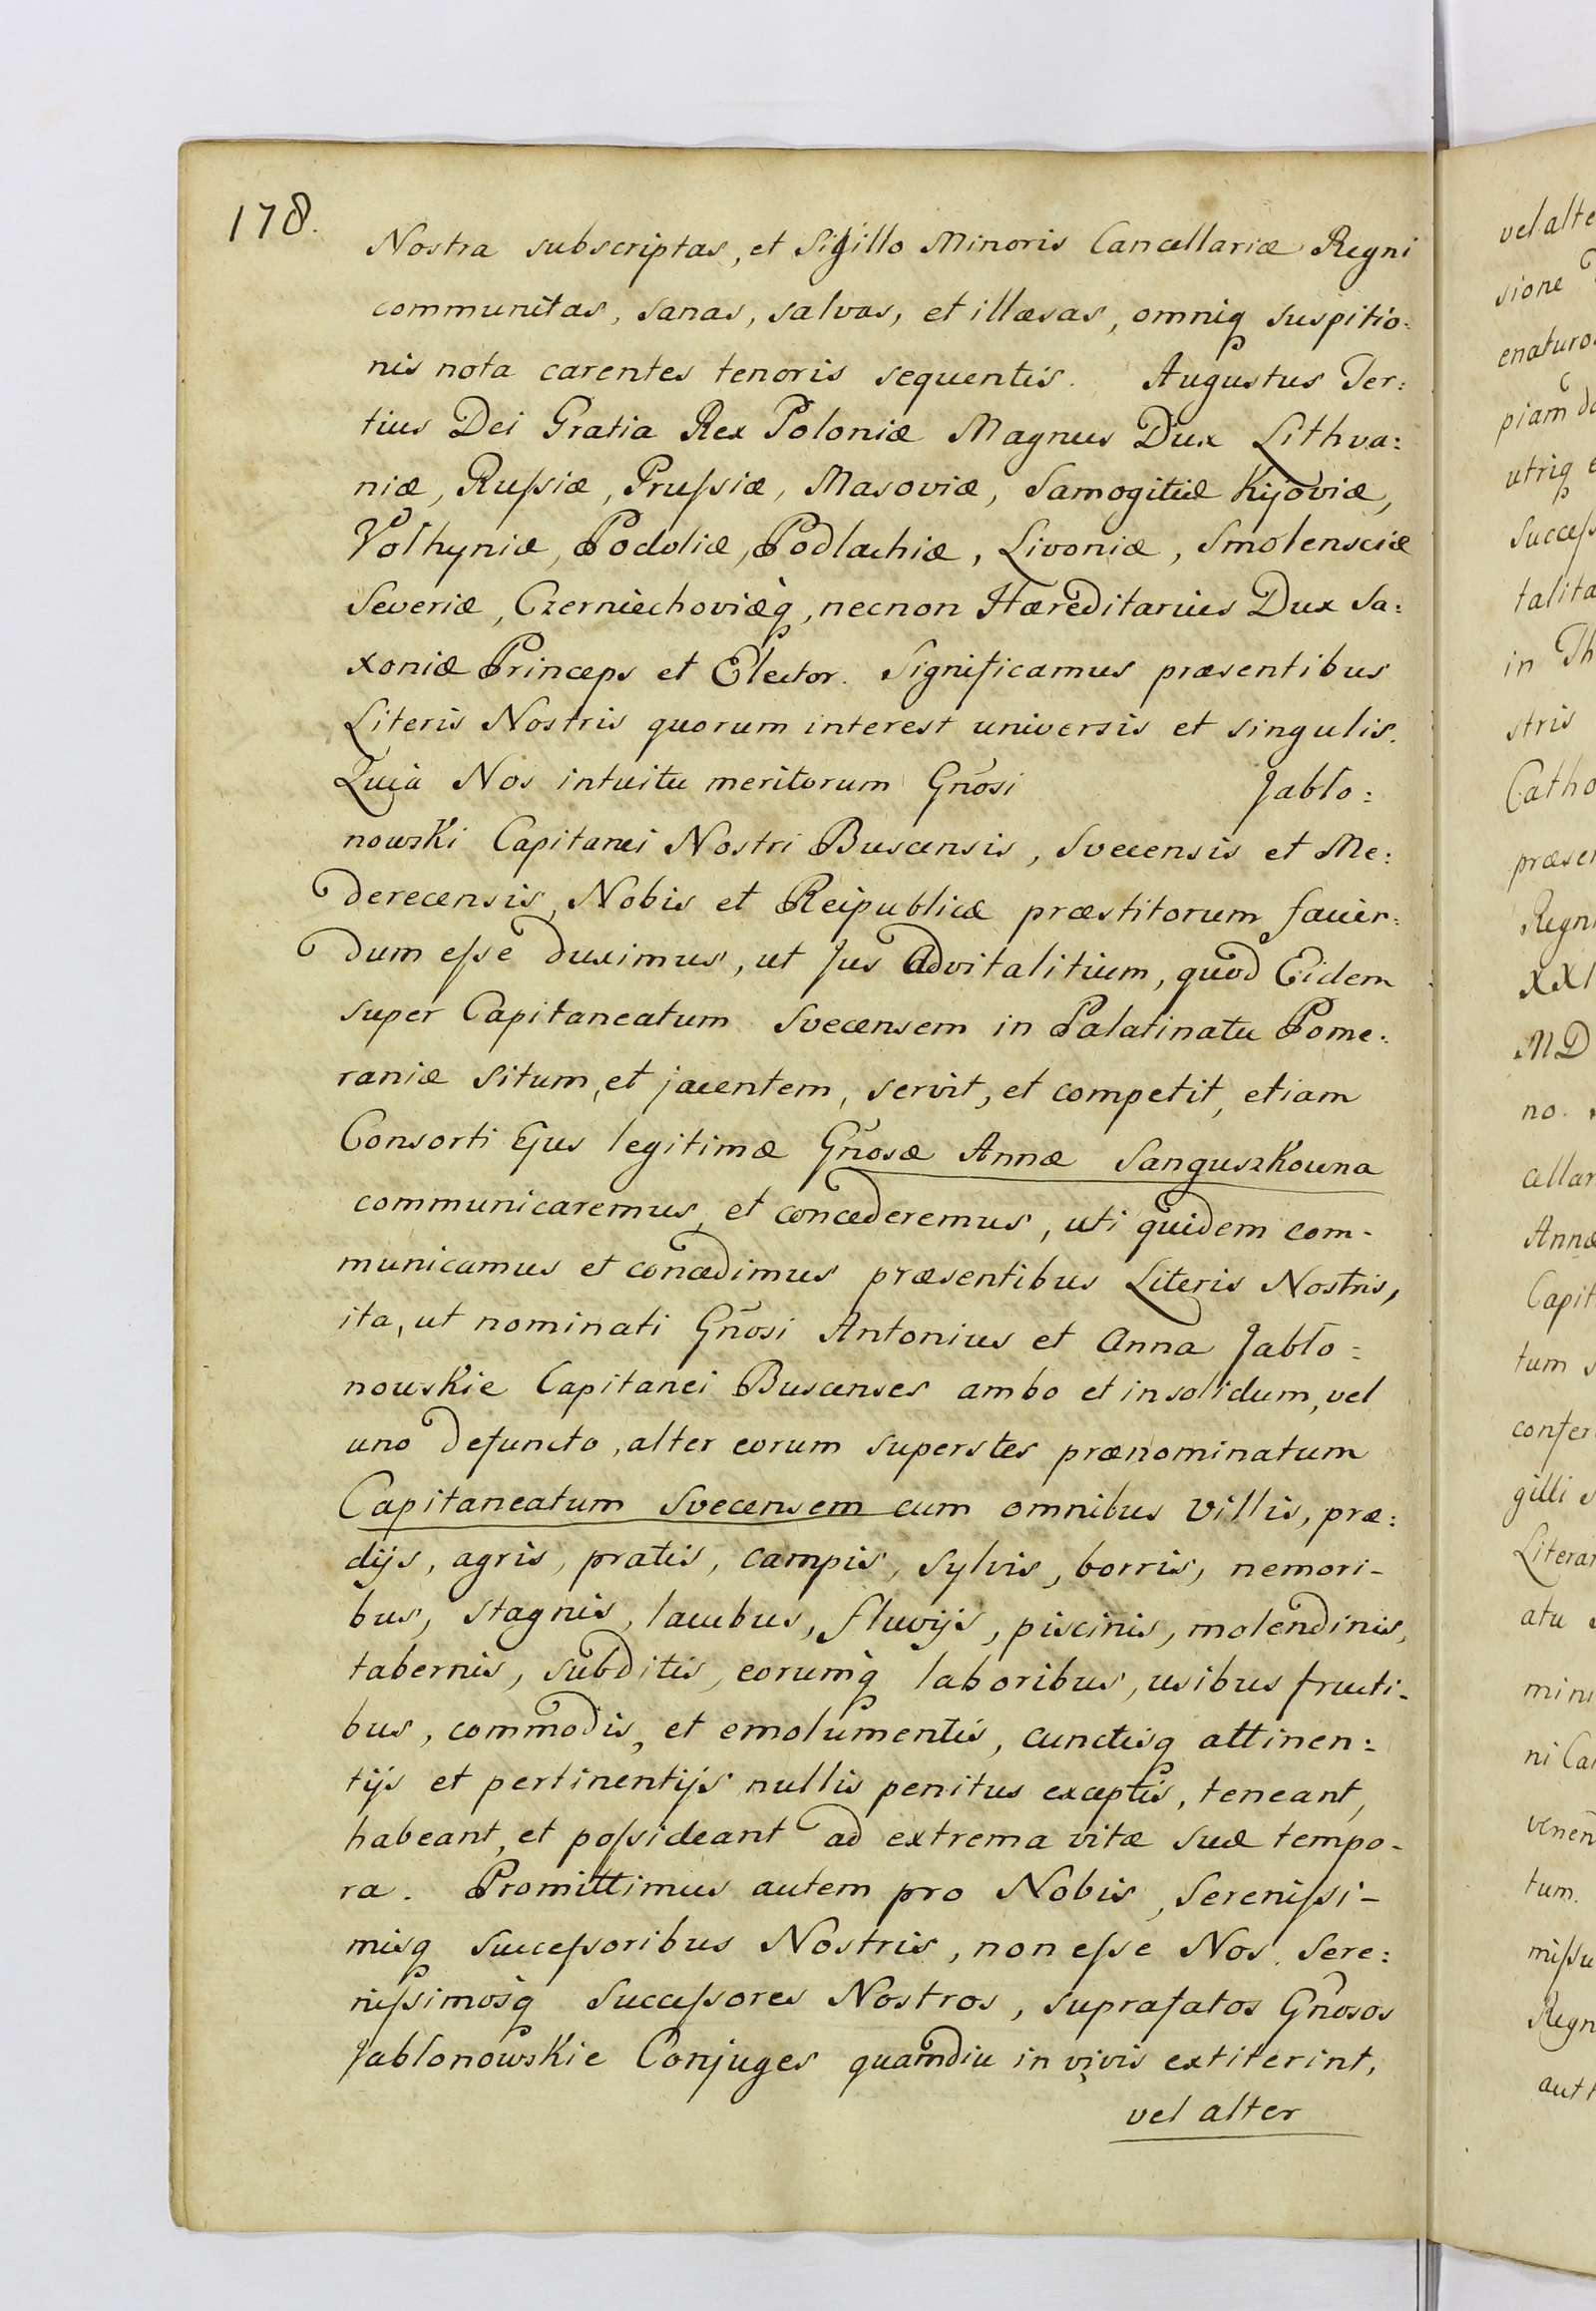 178.
Nostra subscriptas, et Sigillo Minoris Cancellariæ Regni
communitas, sanas, salvas, et illæsas, omniq suspitio:
nis nota carentes tenoris sequentis. Augustus Ter:
tius Dei Gratia Rex Poloniæ Magnus Dux Lithva:
niæ, Ruſsiæ, Pruſsiæ, Masoviæ, Samogitiæ Kijoviæ,
Volhyniæ, Podoliæ, Podlachiæ, Livoniæ, Smolensciæ
Severiæ, Czerniechoviæq, necnon Hæreditarius Dux Sa:
xoniæ Princeps et Elector. Significamus præsentibus
Literis Nostris quorum interest universis et singulis.
Quia Nos intuitu meritorum Gños̃i Jabło:
nowski Capitanei Nostri Buscensis, Svecensis et Me:
derecensis, Nobis et Reipublicæ præstitorum facien:
dum eſse duximus, ut Jus Advitalitium, quod Eidem
super Capitaneatum Svecensem in Palatinatu Pome:
raniæ situm, et jacentem, servit, et competit, etiam
Consorti Ejus legitimæ Gñosæ Annæ Sanguszkowna
communicaremus, et concederemus, uti quidem com-
municamus et concedimus præsentibus Literis Nostris,
ita, ut nominati Gñosi Antonius et Anna Jabło:
nowskie Capitanei Buscenses ambo et insolidum, vel
uno defuncto, alter eorum superstes prænominatum
Capitaneatum Svecensem cum omnibus Villis, præ:
dijs, agris, pratis, campis, sylvis, borris, nemori-
bus, stagnis, lacubus, fluvijs, piscinis, molendinis,
tabernis, subditis, eorumq laboribus, usibus fructi-
bus, commodis, et emolumentis, cunctisq attinen:
tijs et pertinentijs nullis penitus exceptis, teneant,
habeant, et poſsideant ad extrema vitæ suæ tempo-
ra. Promittimus autem pro Nobis, Sereniſsi-
misq Succeſsoribus Nostris, non eſse Nos, Sere:
niſsimosq Succeſsores Nostros, suprafatos Gñosos
Jabłonowskie Conjuges quamdiu in vivis extiterint,
vel alter
vel alte
sione
enaturo
piam
utriq
Succeſs
talita
in Th
stris
Catho
præsen
Regni
XXI
MD
no.
cellar
Annæ
Capit
tum s
confer
gilli s
Literar
atu
mini
ni Ca
tum.
miſsu
Regn